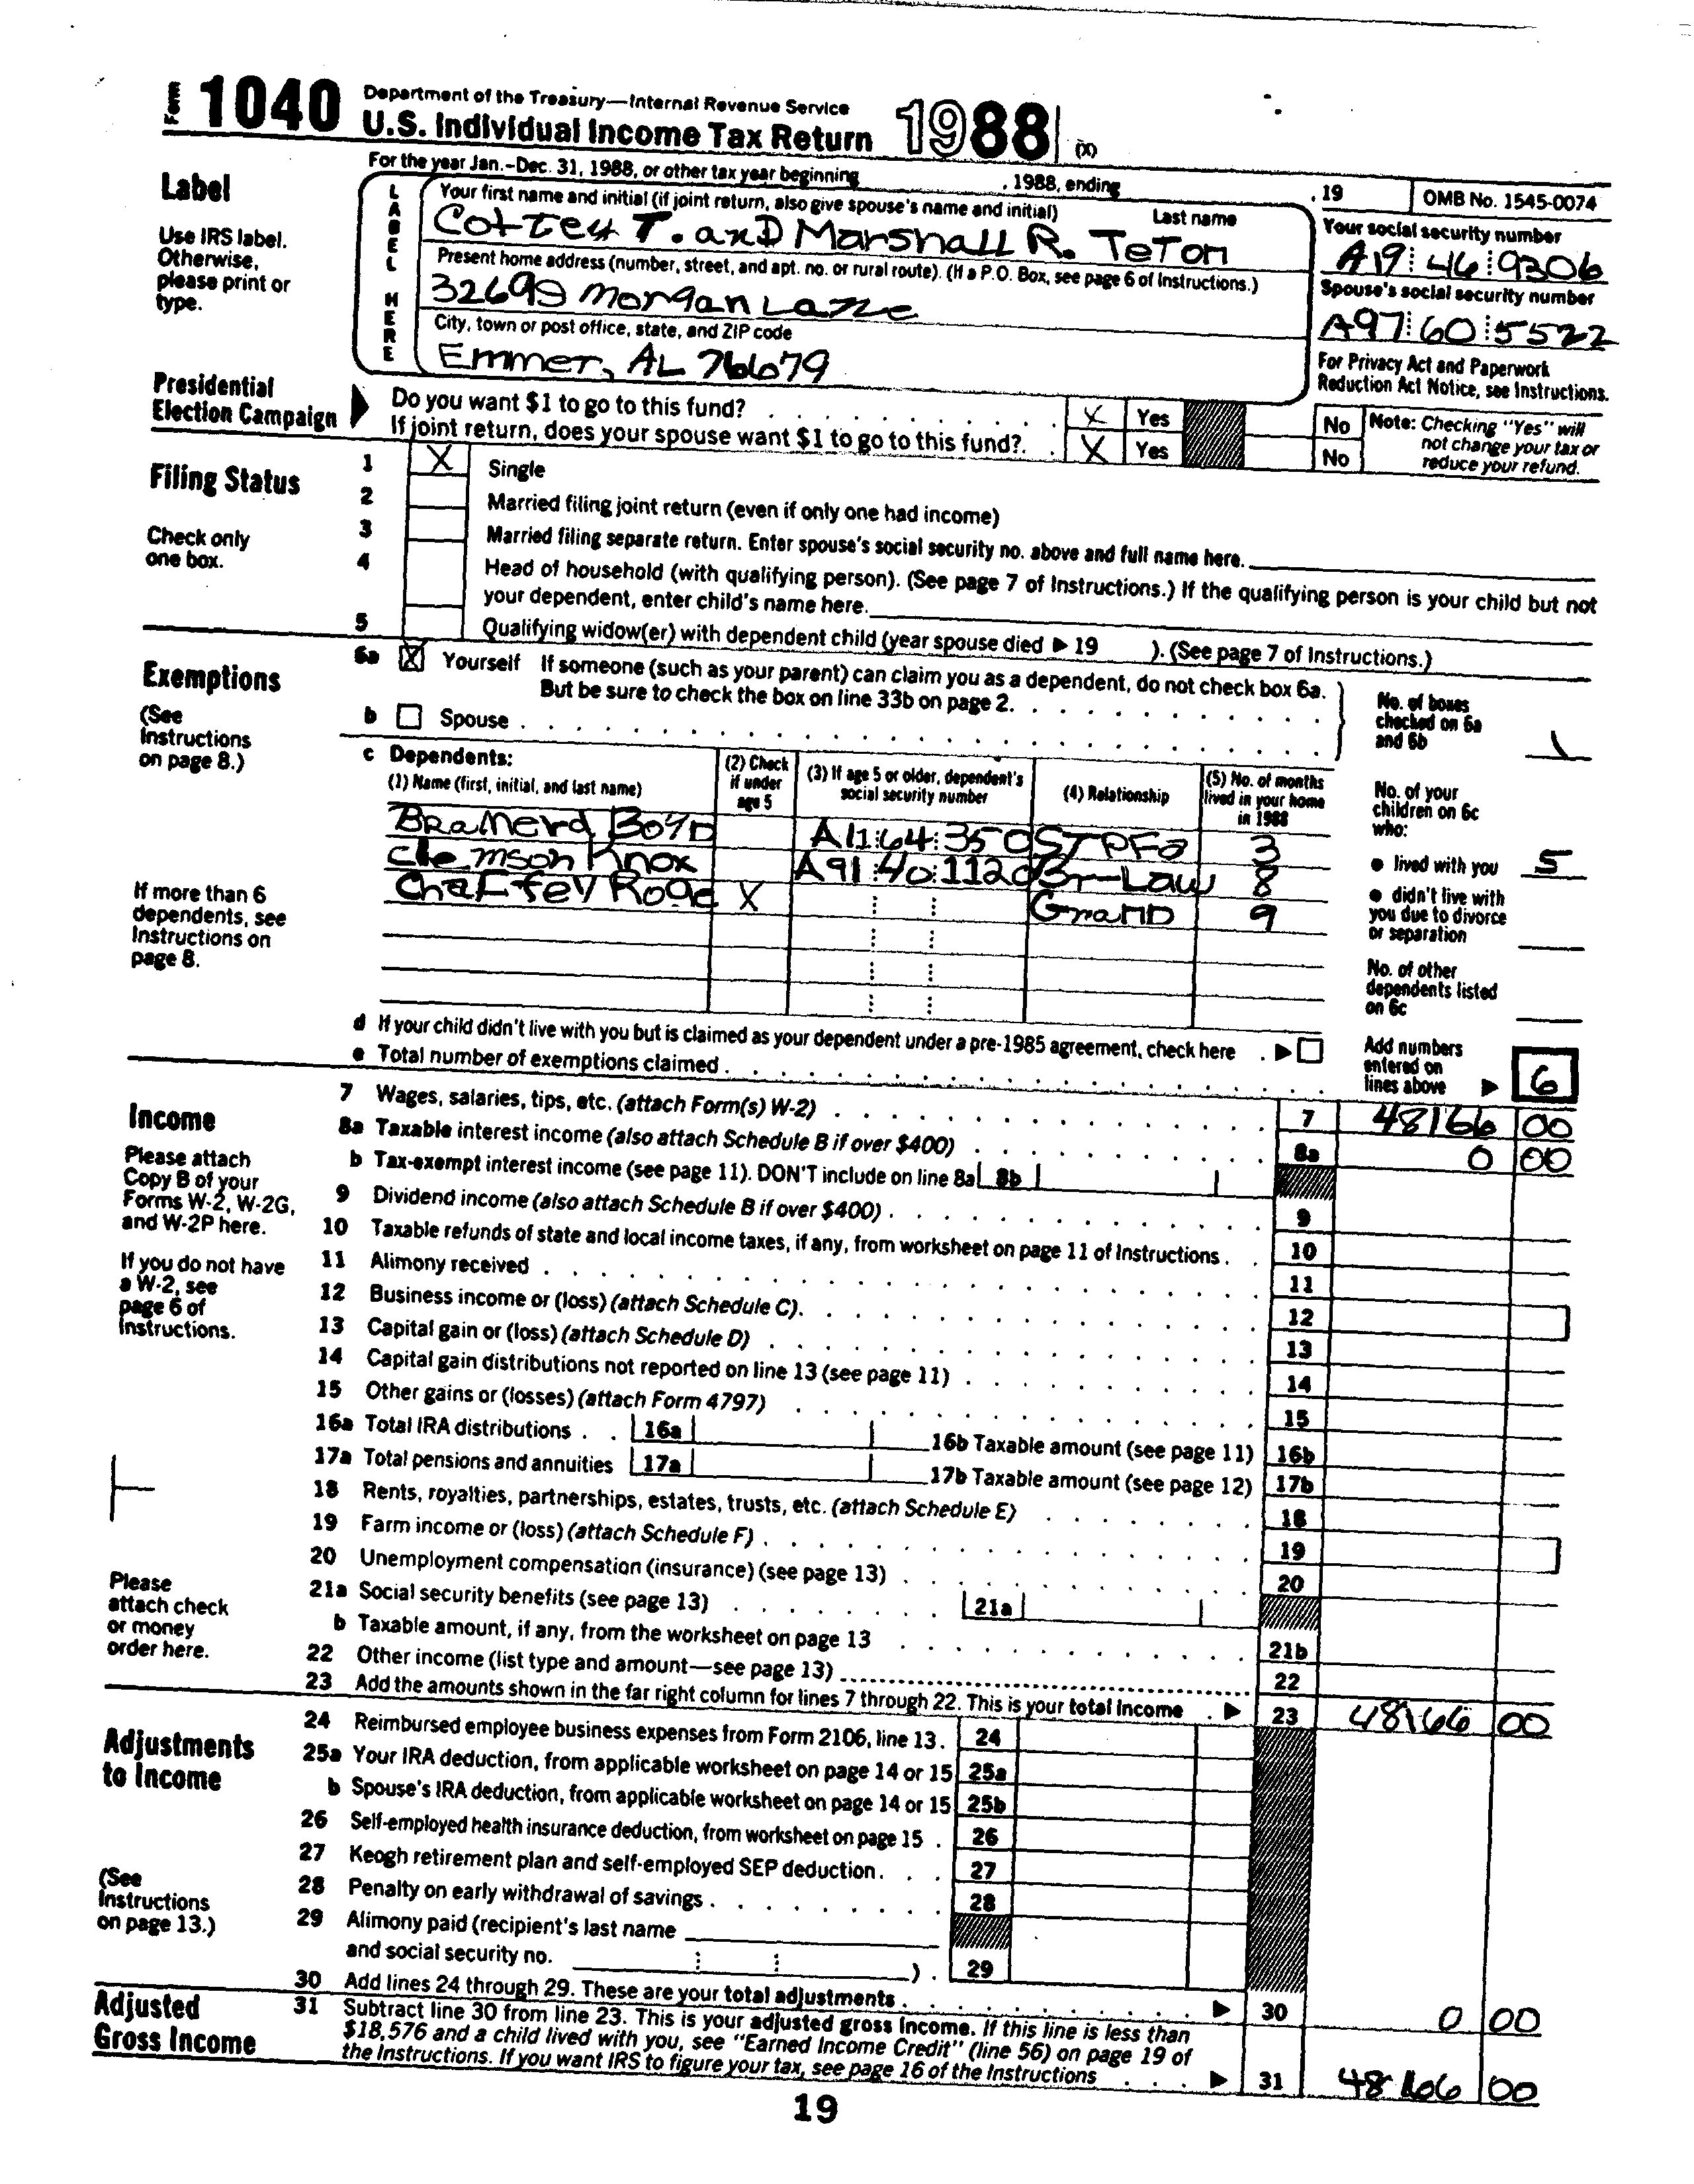 Form 1040 Department of the Treasury—Internal Revenue Service
U.S. Individual Income Tax Return 1988 (X)
For the year Jan.–Dec. 31, 1988, or other tax year beginning , 1988, ending , 19 OMB No. 1545-0074
Label
Use IRS label. Otherwise, please print or type.
LABEL HERE
Your first name and initial (if joint return, also give spouse's name and initial) Last name
Cottey T. and Marshall R. Teton
Your social security number
A19 46 9306
Present home address (number, street, and apt. no. or rural route). (If a P.O. Box, see page 6 of Instructions.)
32699 Morgan Lane
Spouse's social security number
A97 60 5522
City, town or post office, state, and ZIP code
Emmer, AL 76679
For Privacy Act and Paperwork Reduction Act Notice, see Instructions.
Presidential Election Campaign
Do you want $1 to go to this fund? X Yes No
If joint return, does your spouse want $1 to go to this fund? X Yes No
Note: Checking "Yes" will not change your tax or reduce your refund.
Filing Status
Check only one box.
1 X Single
2 Married filing joint return (even if only one had income)
3 Married filing separate return. Enter spouse's social security no. above and full name here.
4 Head of household (with qualifying person). (See page 7 of Instructions.) If the qualifying person is your child but not
your dependent, enter child's name here.
5 Qualifying widow(er) with dependent child (year spouse died ▶ 19 ). (See page 7 of Instructions.)
Exemptions
(See Instructions on page 8.)
6a X Yourself If someone (such as your parent) can claim you as a dependent, do not check box 6a.
But be sure to check the box on line 33b on page 2.
b Spouse
No. of boxes checked on 6a and 6b 1
c Dependents:
(1) Name (first, initial, and last name) (2) Check if under age 5 (3) If age 5 or older, dependent's social security number (4) Relationship (5) No. of months lived in your home in 1988
Bramerd Boyd A11 64 350 STPFa 3
Clemson Knox A91 40 1120 Br-Law 8
Chaffey Roge X Grand 9
If more than 6 dependents, see Instructions on page 8.
No. of your children on 6c who:
● lived with you 5
● didn't live with you due to divorce or separation
No. of other dependents listed on 6c
d If your child didn't live with you but is claimed as your dependent under a pre-1985 agreement, check here ▶
e Total number of exemptions claimed
Add numbers entered on lines above ▶ 6
Income
Please attach Copy B of your Forms W-2, W-2G, and W-2P here.
If you do not have a W-2, see page 6 of Instructions.
Please attach check or money order here.
7 Wages, salaries, tips, etc. (attach Form(s) W-2) 7 48166 00
8a Taxable interest income (also attach Schedule B if over $400) 8a 0 00
b Tax-exempt interest income (see page 11). DON'T include on line 8a 8b
9 Dividend income (also attach Schedule B if over $400) 9
10 Taxable refunds of state and local income taxes, if any, from worksheet on page 11 of Instructions 10
11 Alimony received 11
12 Business income or (loss) (attach Schedule C) 12
13 Capital gain or (loss) (attach Schedule D) 13
14 Capital gain distributions not reported on line 13 (see page 11) 14
15 Other gains or (losses) (attach Form 4797) 15
16a Total IRA distributions 16a 16b Taxable amount (see page 11) 16b
17a Total pensions and annuities 17a 17b Taxable amount (see page 12) 17b
18 Rents, royalties, partnerships, estates, trusts, etc. (attach Schedule E) 18
19 Farm income or (loss) (attach Schedule F) 19
20 Unemployment compensation (insurance) (see page 13) 20
21a Social security benefits (see page 13) 21a
b Taxable amount, if any, from the worksheet on page 13 21b
22 Other income (list type and amount—see page 13) 22
23 Add the amounts shown in the far right column for lines 7 through 22. This is your total income ▶ 23 48166 00
Adjustments to Income
(See Instructions on page 13.)
24 Reimbursed employee business expenses from Form 2106, line 13. 24
25a Your IRA deduction, from applicable worksheet on page 14 or 15 25a
b Spouse's IRA deduction, from applicable worksheet on page 14 or 15 25b
26 Self-employed health insurance deduction, from worksheet on page 15 26
27 Keogh retirement plan and self-employed SEP deduction 27
28 Penalty on early withdrawal of savings 28
29 Alimony paid (recipient's last name
and social security no. ) 29
30 Add lines 24 through 29. These are your total adjustments ▶ 30 0 00
Adjusted Gross Income
31 Subtract line 30 from line 23. This is your adjusted gross income. If this line is less than
$18,576 and a child lived with you, see "Earned Income Credit" (line 56) on page 19 of
the Instructions. If you want IRS to figure your tax, see page 16 of the Instructions ▶ 31 48166 00
19